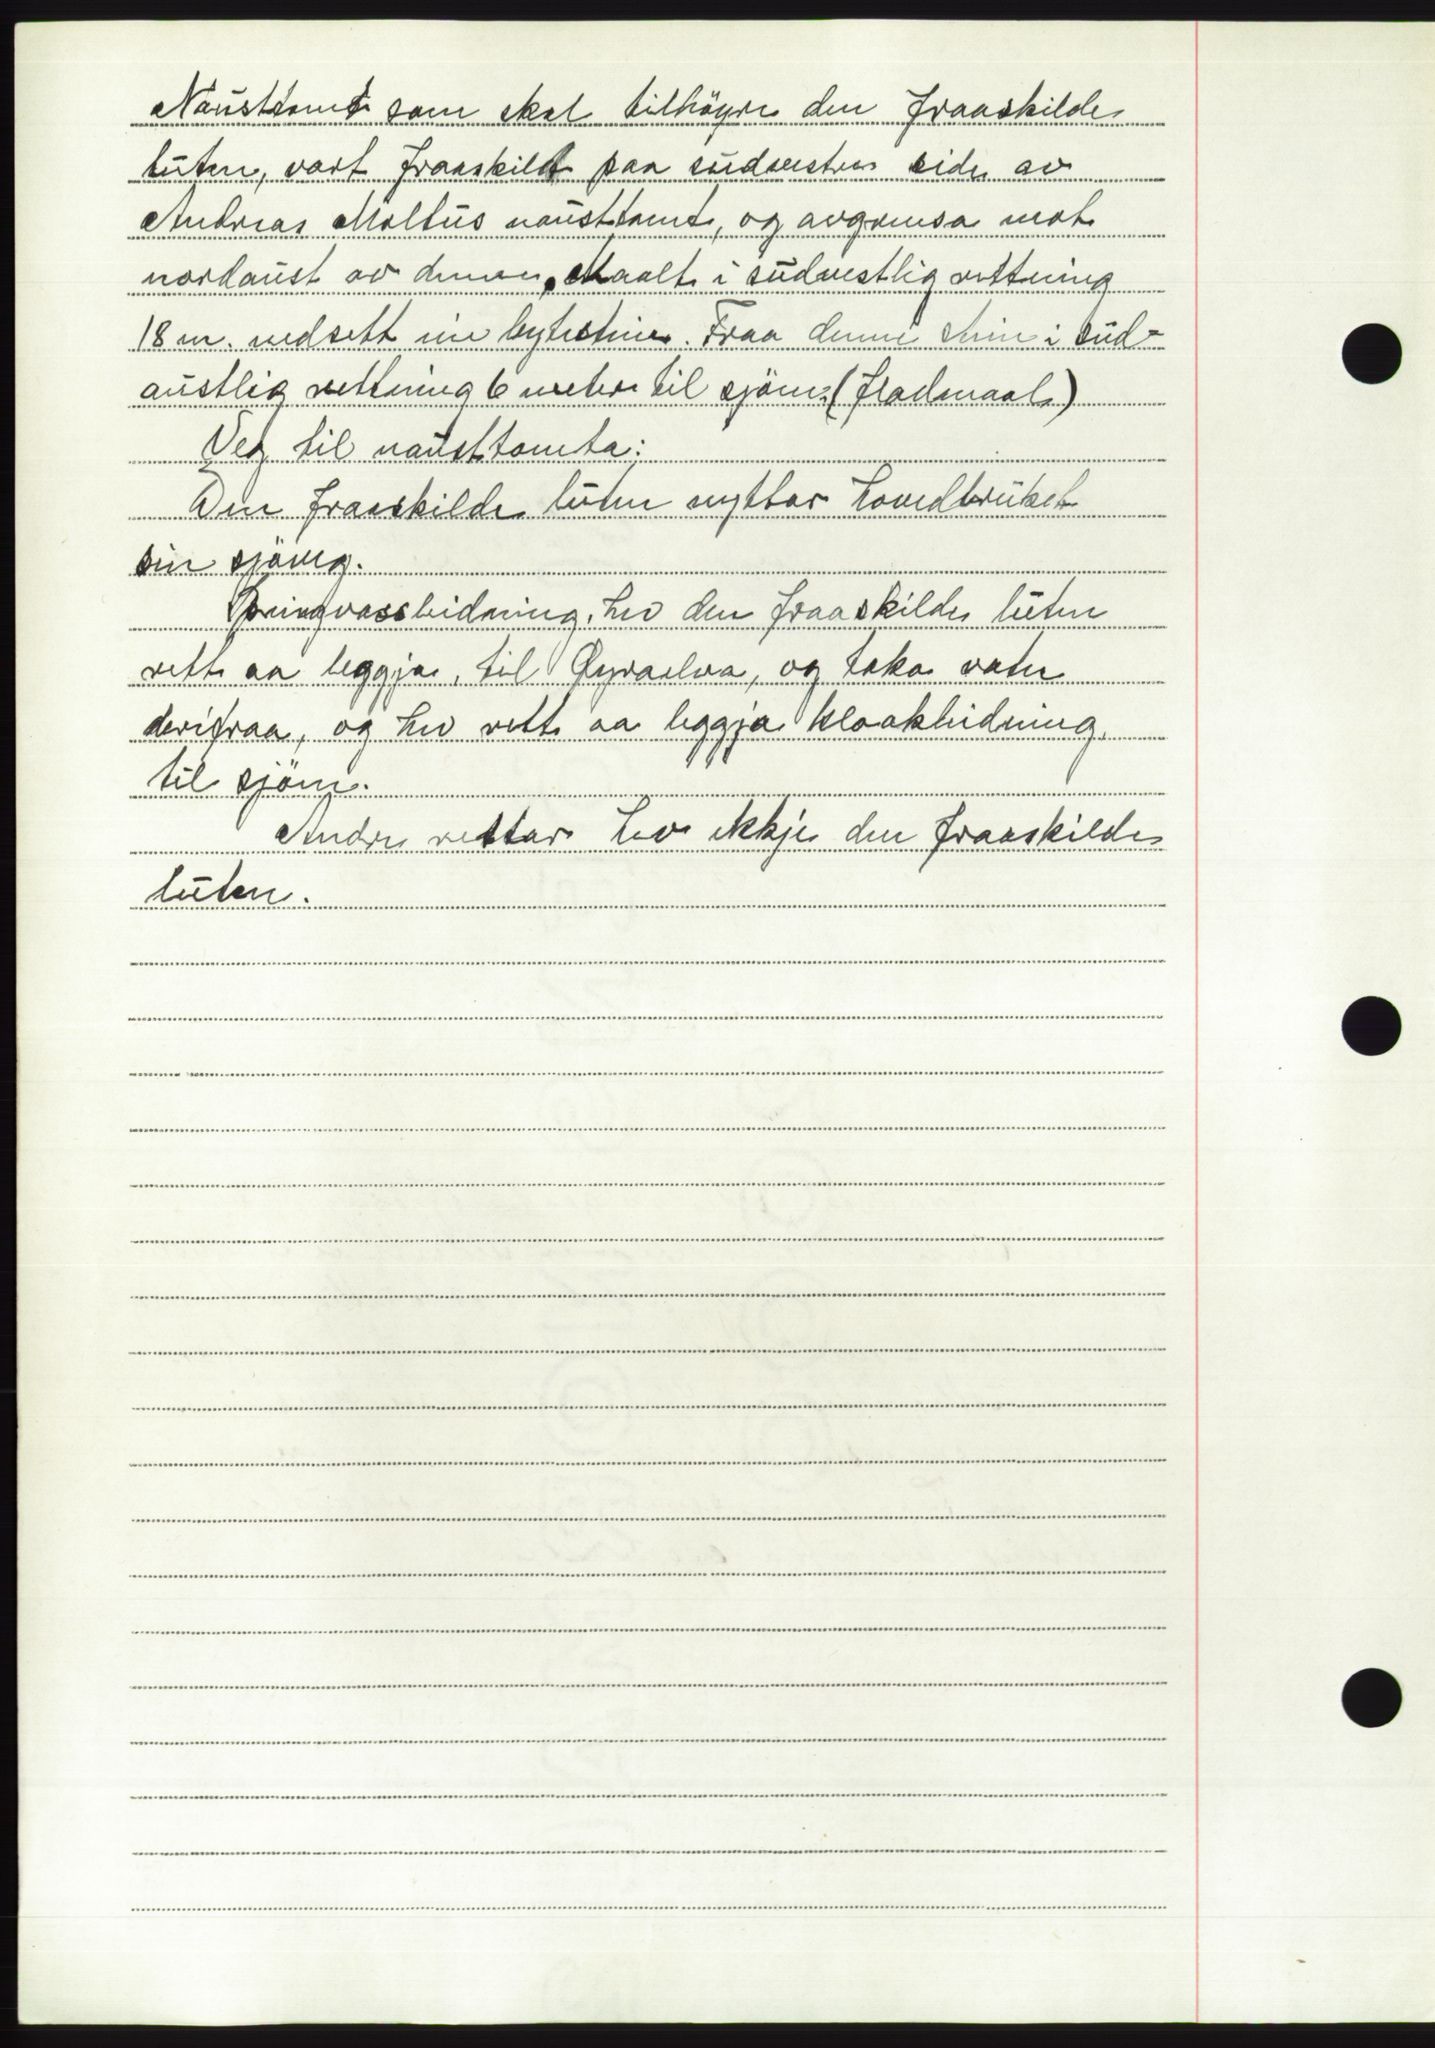 Nausttomt som skal tilhöyre den fraaskilde
luten, vart fraaskilt paa sudvestre side av
Andreas Moltus nausttomt, og avgrensa mot
nordaust av denne. Maalt i sudvestlig rettning
18 m. nedsett ein bytestein. Fraa denne stein i sud-
austlig rettning 6 meter til sjöen. (fladmaal)
Veg til nausttomta:
Den fraaskilde luten nyttar hovedbruket
sin sjöveg.
Springvassleidning, hev den fraaskilde luten
rett aa leggja, til Øyraelva, og taka vatn
derifraa, og hev rett aa leggja kloakleidning,
til sjöen.
Andre rettar hev ikkje den fraaskilde
luten.